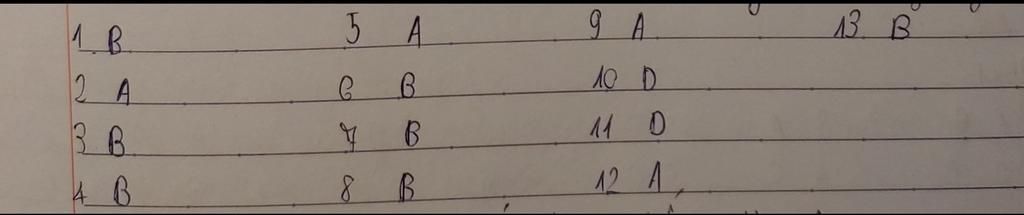 1 B 5 A 9 A 13 B
2 A 6 B 10 D
3 B 7 B 11 D
4 B 8 B 12 A